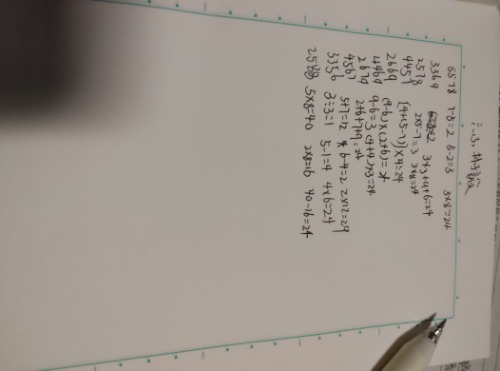 6578 7-5=2 6÷2=3 3×8=24
3369 3×3+9+6=24
2578 2×5-7=3 3×8=24
4457
2669 (9-6)×(2+6)=24
4469 9-6=3 (4+4)×3=24
2679 2+6+7+9=24
4567 5+7=12 6-4=2 2×12=24
3356 3÷3=1 5-1=4 4×6=24
2588 5×8=40 2×8=16 40-16=24